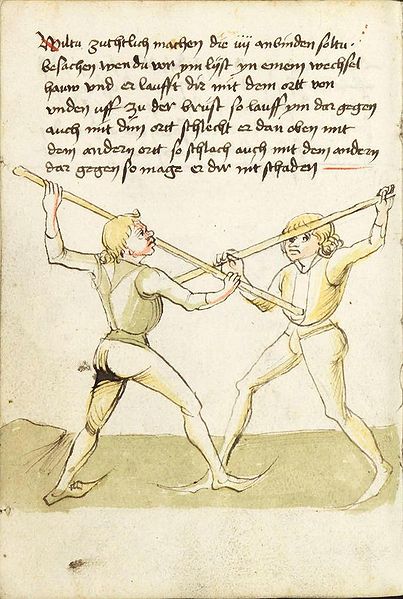 Wiltu zuchtlich machen die iiij anbinden soltu
besachen wen du vor ym lyst yn einem wechsel
hauw und er laufft dir mit dem ortt von
unden uff zu der brust so lauff ym dar gegen
auch mit dim ort schlecht er dan oben mit
dem andern ort so schlach auch mit dem andern
dar gegen so mage er dir nit schaden